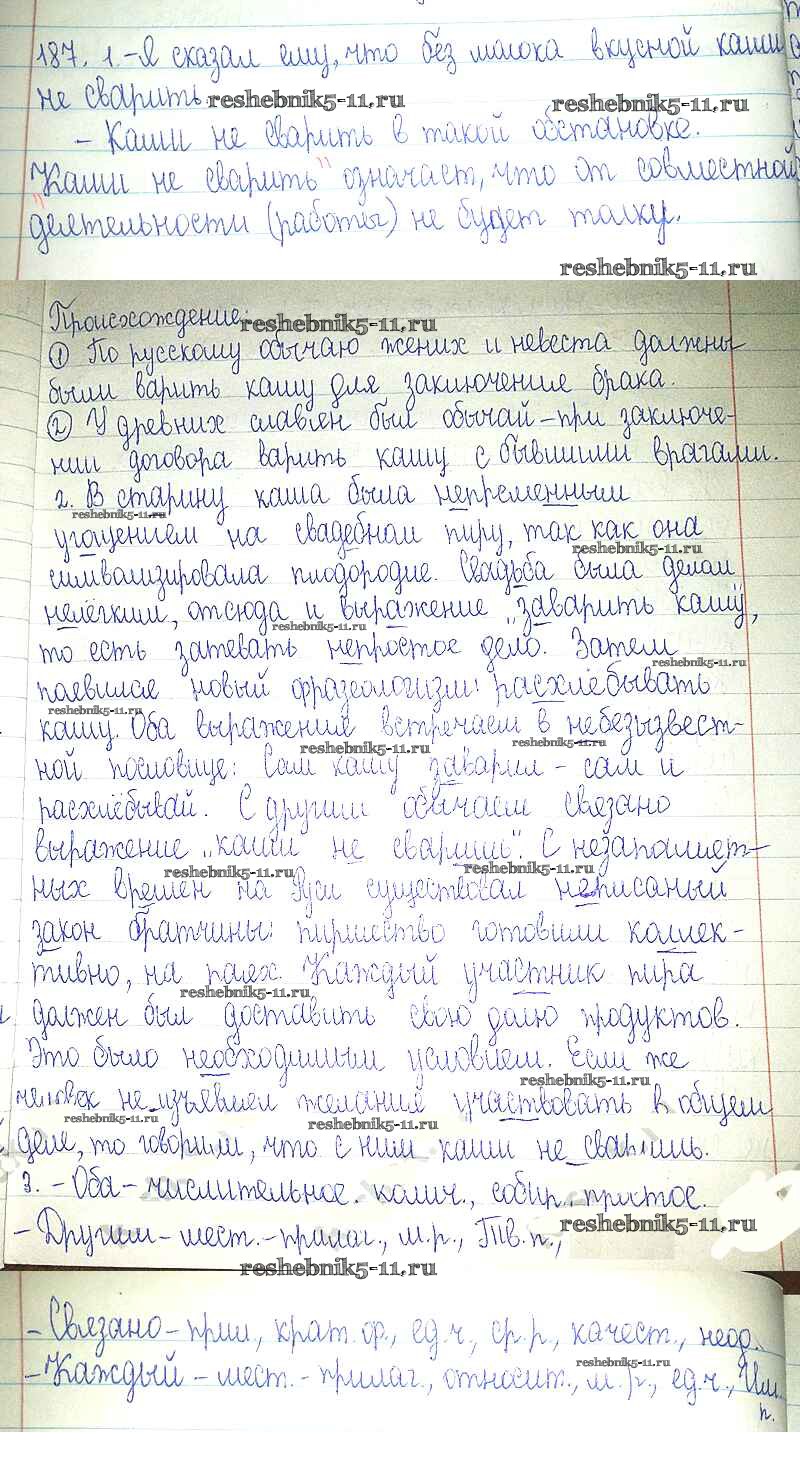 187. 1. -Я сказал ему, что без молока вкусной каши
не сварить. reshebnik5-11.ru reshebnik5-11.ru
- Каши не сварить в такой обстановке.
"Каши не сварить" означает, что от совместной
деятельности (работы) не будет толку.
reshebnik5-11.ru
Происхождение: reshebnik5-11.ru
① По русскому обычаю жених и невеста должны
были варить кашу для заключения брака.
② У древних славян был обычай - при заключе-
нии договора варить кашу с бывшими врагами.
2. В старину каша была непременным
reshebnik5-11.ru
угощением на свадебном пиру, так как она
reshebnik5-11.ru
символизировала плодородие. Свадьба была делом
нелёгким, отсюда и выражение „заварить кашу,
reshebnik5-11.ru
то есть затевать непростое дело. Затем
reshebnik5-11.ru
появился новый фразеологизм: расхлёбывать
reshebnik5-11.ru
кашу. Оба выражения встречаем в небезызвест-
reshebnik5-11.ru reshebnik5-11.ru
ной пословице: Сам кашу заварил - сам и
расхлёбывай. С другим обычаем связано
выражение „каши не сваришь". С незапамят-
reshebnik5-11.ru reshebnik5-11.ru
ных времён на Руси существовал неписаный
закон братчины: пиршество готовили коллек-
тивно, на паях. Каждый участник пира
reshebnik5-11.ru
должен был доставить свою долю продуктов.
Это было необходимым условием. Если же
reshebnik5-11.ru
человек не изъявлял желания участвовать в общем
reshebnik5-11.ru reshebnik5-11.ru
деле, то говорили, что с ним каши не сваришь.
3. - Оба - числительное. колич., собир. простое.
- Другим - мест.-прилаг., м.р., Тв.п., reshebnik5-11.ru
reshebnik5-11.ru
- Связано - прич., крат. ф., ед.ч., ср.р., качест., неод.
reshebnik5-11.ru
- Каждый - мест. - прилаг., относит., м.р., ед.ч., Им.
п.